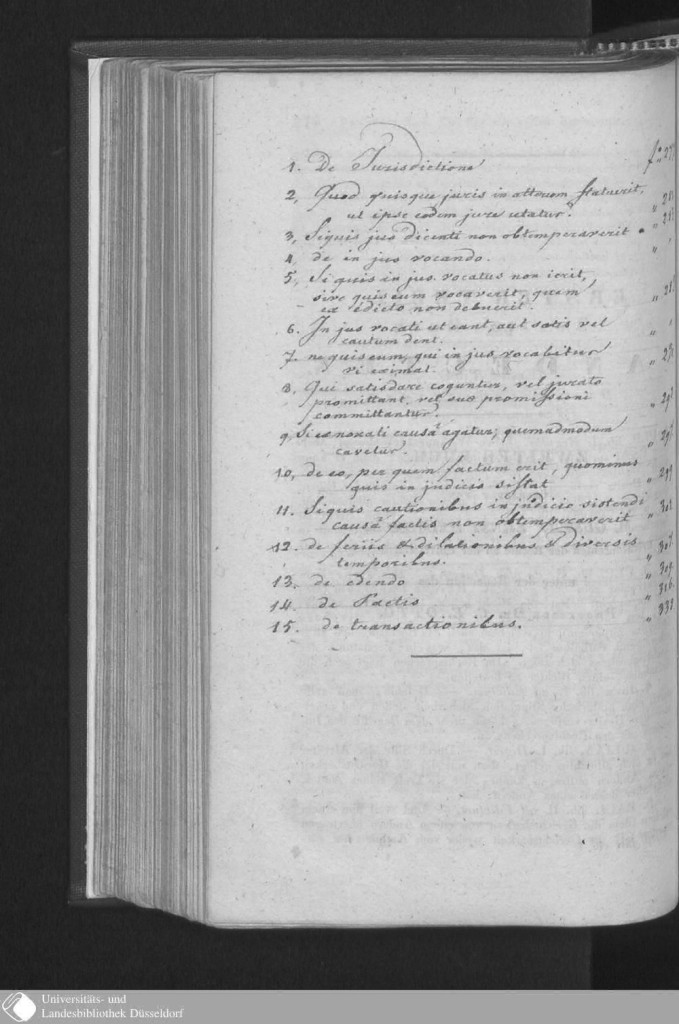 1. De Jurisdictione
2, Quod quisque juris in alterum statuerit,
ut ipse eodem jure utatur.
3, Siquis jus dicenti non obtemperaverit
4, de in jus vocando.
5, Si quis in jus vocatus non ierit,
sive quis eum vocaverit, quem
ex edicto non debuerit.
6. In jus vocati ut eant, aut satis vel
cautum dent.
7. ne quis eum, qui in jus vocabitur
vi eximat.
8. Qui satisdare coguntur, vel jurato
promittant, vel suae promissioni
committantur.
9, Si ex noxali causâ agatur, quemadmodum
cavetur.
10, de eo, per quem factum erit, quominus
quis in judicio sistat
11. Siquis cautionibus in judicio sistendi
causâ factis non obtemperaverit
12. de feriis & dilationibus & diversis
temporibus.
13. de edendo
14. de Pactis
15. de transactionibus.
Universitäts- und
Landesbibliothek Düsseldorf